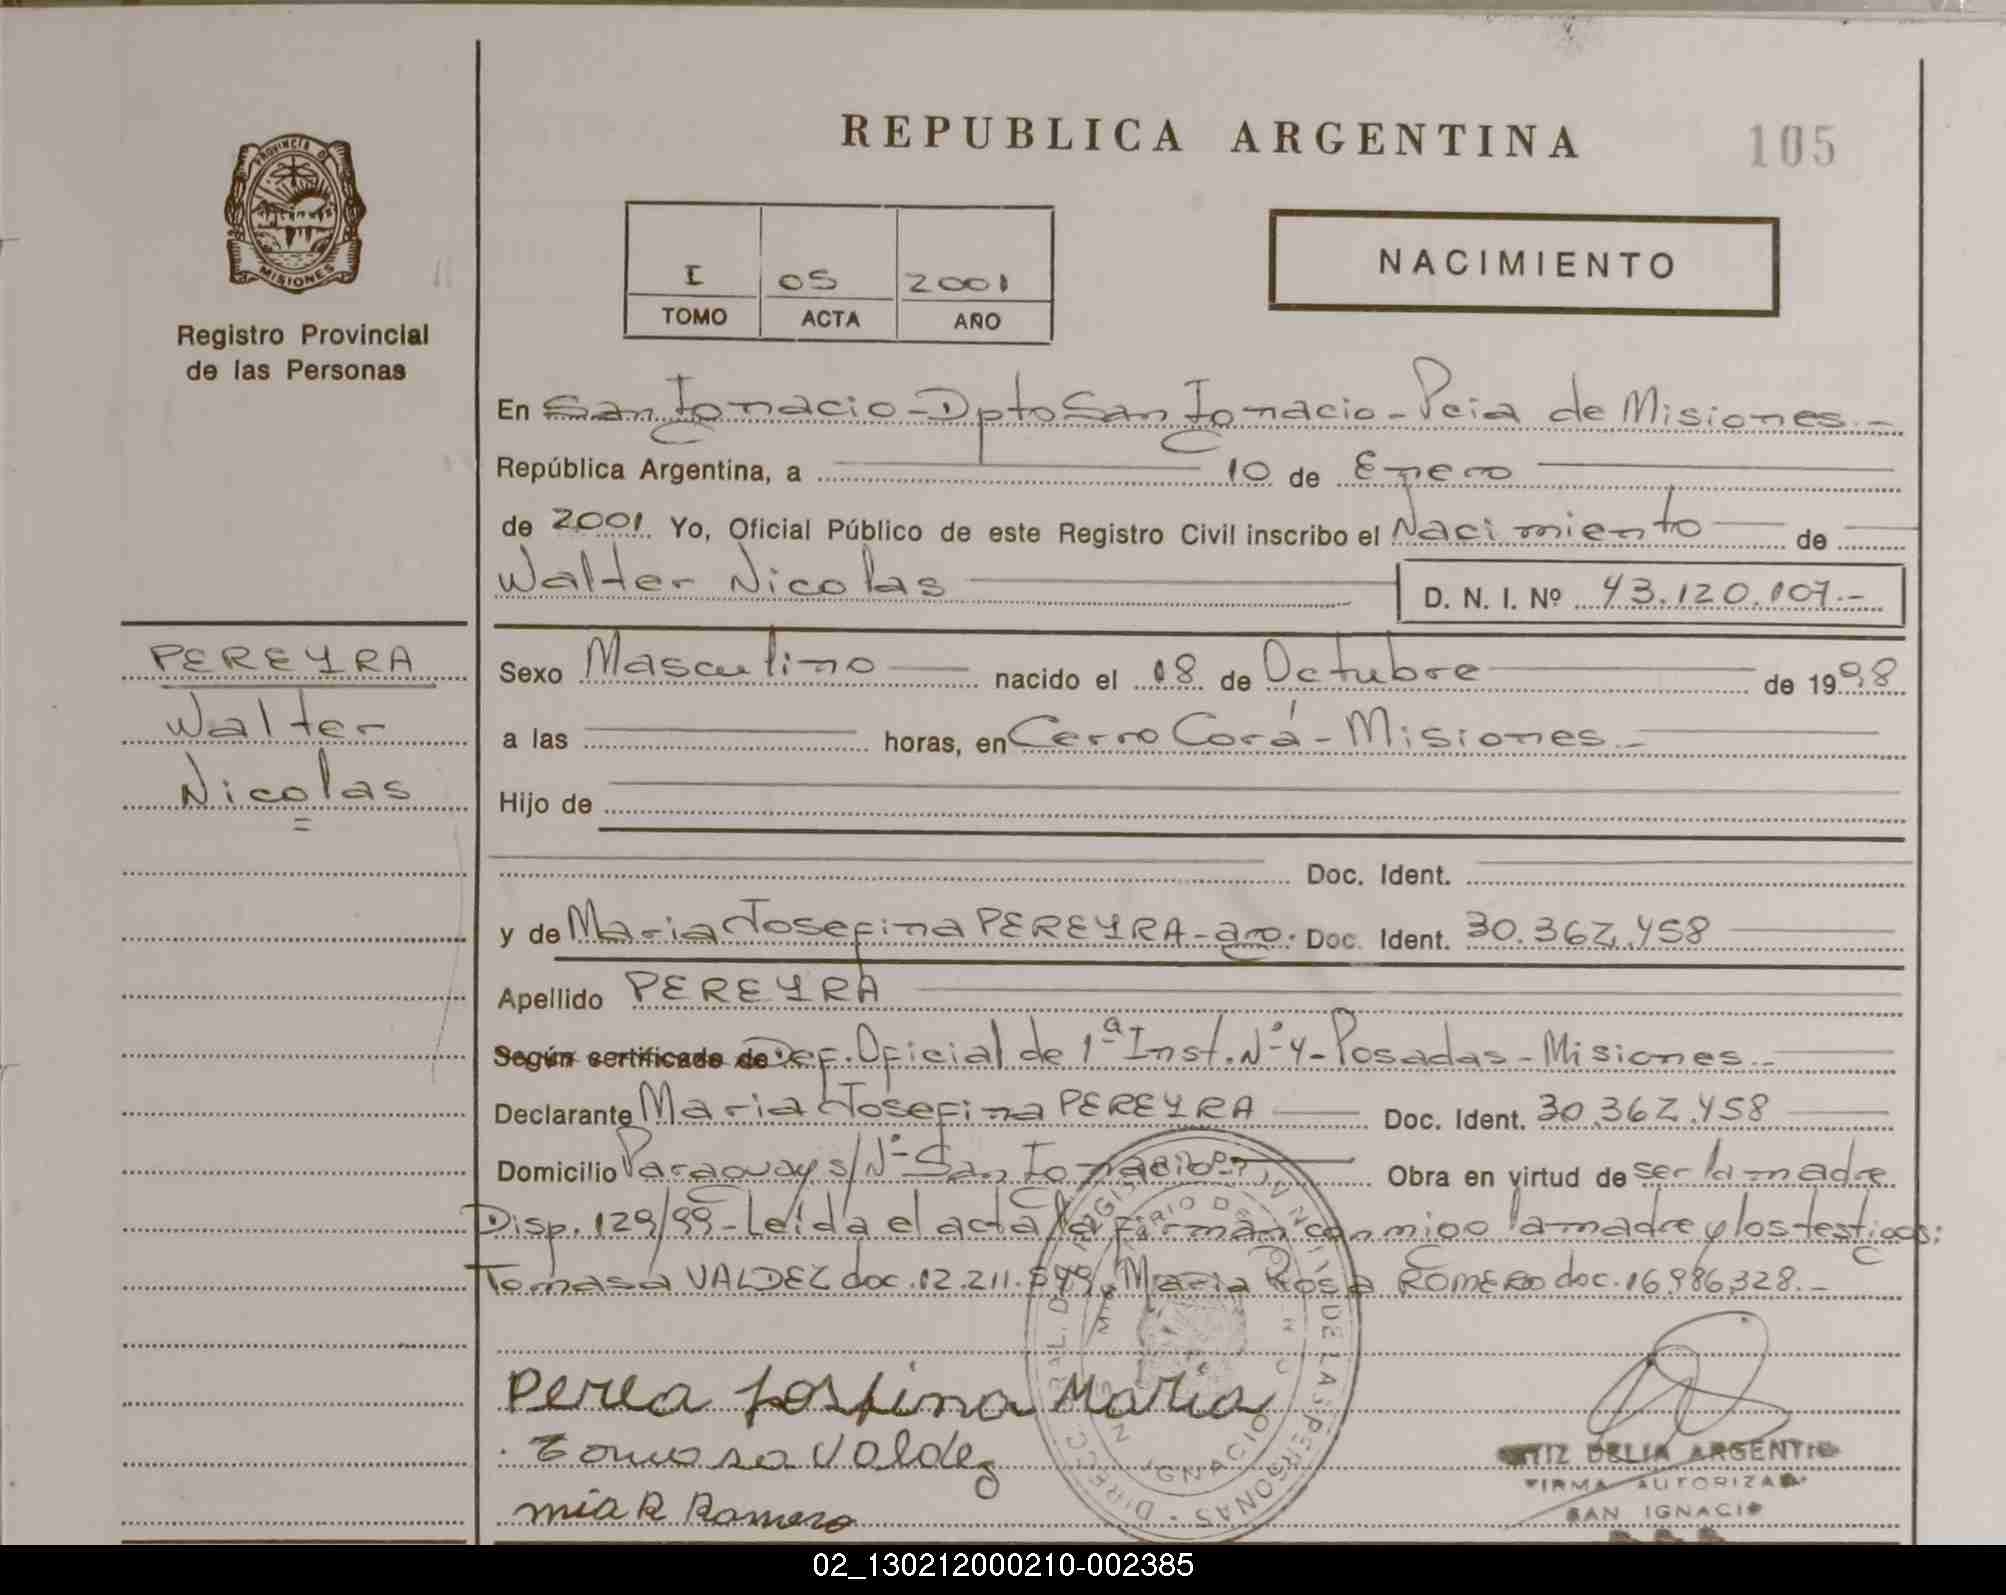 REPUBLICA ARGENTINA
105
PROVINCIA D
MISIONES
Registro Provincial
de las Personas
I 05 2001
TOMO ACTA AÑO
NACIMIENTO
En San Ignacio-Dpto San Ignacio-Pcia de Misiones.-
República Argentina, a 10 de Enero
de 2001 Yo, Oficial Público de este Registro Civil inscribo el Nacimiento de
Walter Nicolas D. N. I. Nº 43.120.107.-
PEREYRA
Walter
Nicolas
Sexo Masculino nacido el 08 de Octubre de 1998
a las horas, en Cerro Corá-Misiones-
Hijo de
Doc. Ident.
y de Maria Josefina PEREYRA-arg. Doc. Ident. 30.362.458
Apellido PEREYRA
Según certificado de Def. Oficial de 1ª Inst. Nº 4-Posadas-Misiones.-
Declarante Maria Josefina PEREYRA Doc. Ident. 30.362.458
Domicilio Paraguay s/Nº San Ignacio Obra en virtud de ser la madre
Disp. 129/99-Leída el acta la firman conmigo la madre y los testigos:
Tomasa VALDEZ doc. 12.211.599, Maria Rosa ROMERO doc. 16.986.328.-
Perea Josfina Maria
Tomasa Valdez
mia R Romero
DELIA ARGENTI
FIRMA AUTORIZAD
SAN IGNACIO
02_130212000210-002385